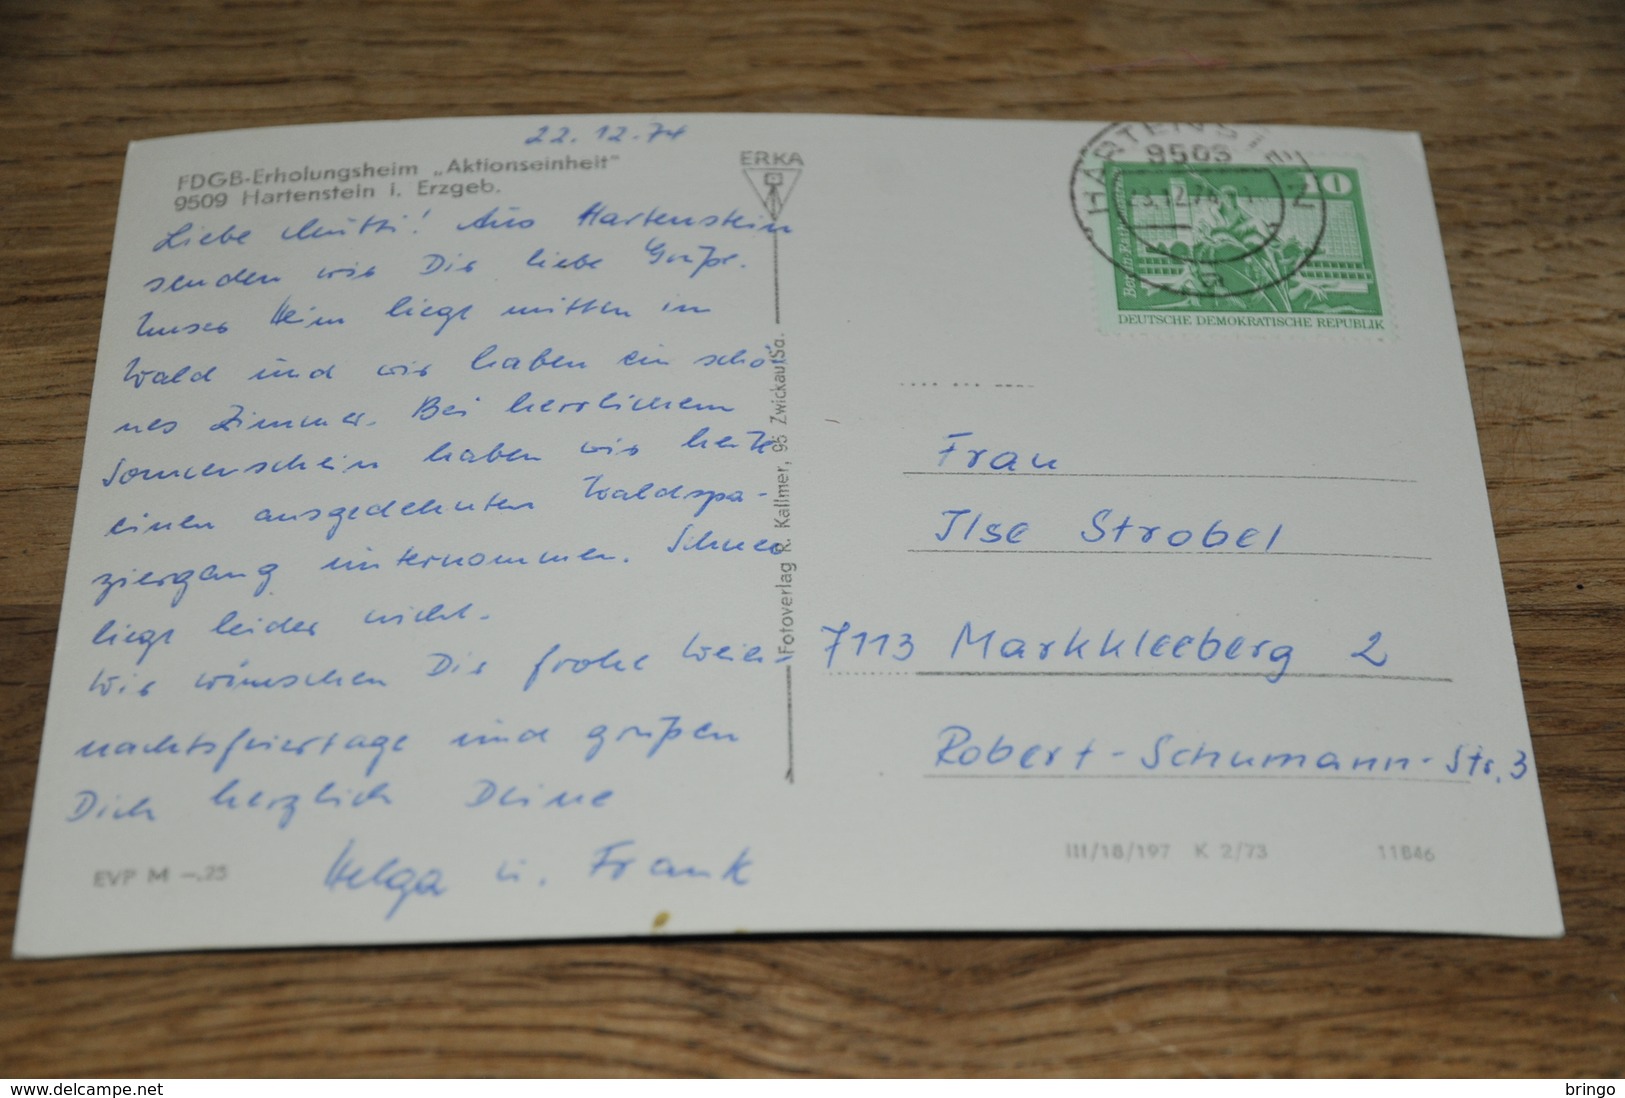 22.12.74
FDGB-Erholungsheim „Aktionseinheit“
9509 Hartenstein i. Erzgeb.
Liebe Mutti! Aus Hartenstein
senden wir Dir liebe Grüße.
Unser Heim liegt mitten im
Wald und wir haben ein schö-
nes Zimmer. Bei herrlichem
Sonnenschein haben wir heute
einen ausgedehnten Waldspa-
ziergang unternommen. Schnee
liegt leider nicht.
Wir wünschen Dir frohe Weih-
nachtsfeiertage und grüßen
Dich herzlich Deine
Helga u. Frank
EVP M -.25
ERKA
Fotoverlag R. Kallmer, 95 Zwickau/Sa.
HARTENSTEIN
9509
23.12.74
10
Berlin
DEUTSCHE DEMOKRATISCHE REPUBLIK
Frau
Ilse Strobel
7113 Markkleeberg 2
Robert-Schumann-Str. 3
III/18/197 K 2/73 11846
delcampe.net
bringo